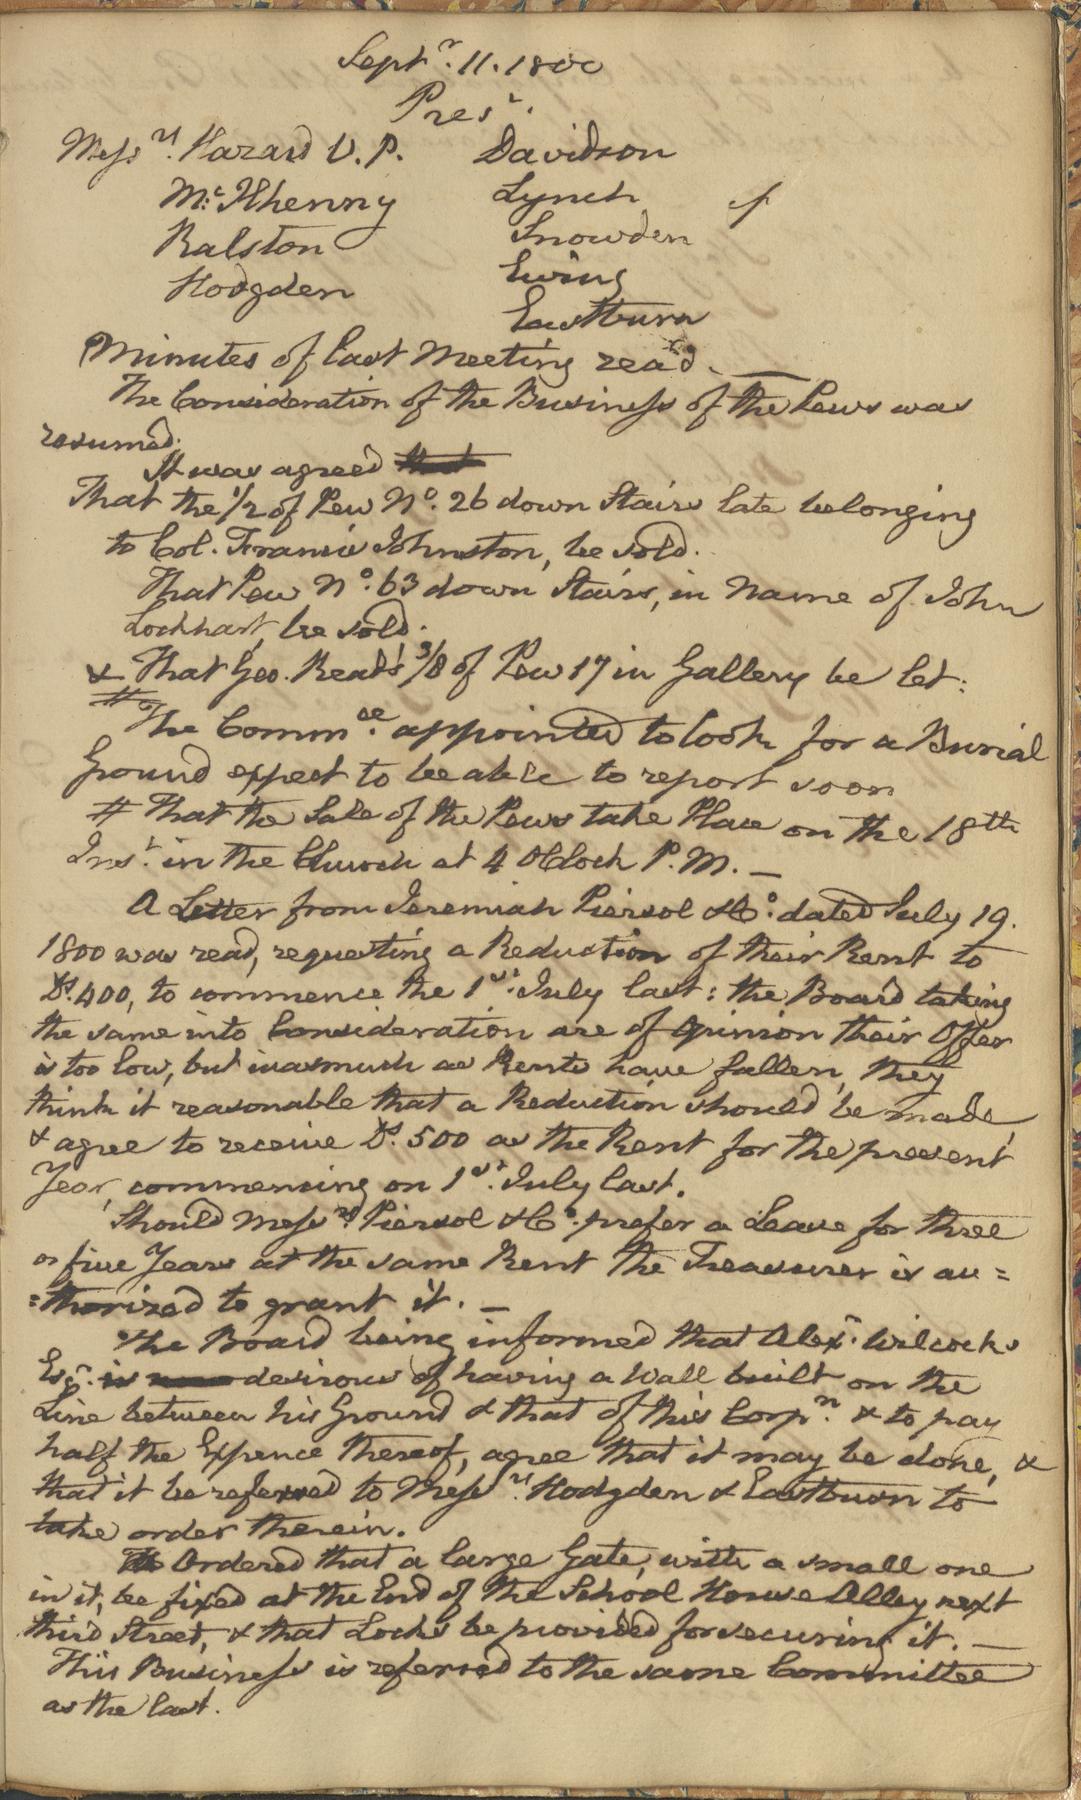 Septr. 11. 1800
Prest.
Messrs. Hazard V. P. Davidson
McIlhenny Lynch
Ralston Snowden
Hodgden Ewing
Eastburn
Minutes of last Meeting read. —
The Consideration of the Business of the Pews was
resumed.
It was agreed
That the 1/2 of Pew No. 26 down Stairs late belonging
to Col. Francis Johnston, be sold.
That Pew No. 63 down Stairs, in Name of John
Lockhart, be sold.
& That Geo. Read's 3/8 of Pew 17 in Gallery be let:
#
The Commee. appointed to look for a Burial
Ground expect to be able to report soon
# That the Sale of the Pews take Place on the 18th
Inst. in the Church at 4 OClock P. M. —
A Letter from Jeremiah Piersol & Co. dated July 19.
1800 was read, requesting a Reduction of their Rent to
Ds. 400, to commence the 1st. July last: the Board taking
the same into Consideration are of Opinion their Offer
is too low, but inasmuch as Rents have fallen, they
think it reasonable that a Reduction should be made,
& agree to receive Ds. 500 as the Rent for the present
Year, commencing on 1st. July last.
Should Messrs. Piersol & Co. prefer a Lease for three
or five Years at the same Rent the Treasurer is au=
=thorized to grant it. —
The Board being informed that Alexr. Wilcocks
Esqr. is desirous of having a Wall built on the
Line between his Ground & that of this Corpn. & to pay
half the Expence thereof, agree that it may be done, &
that it be referred to Messrs. Hodgden & Eastburn to
take order therein.
Ordered that a large Gate, with a small one
in it, be fixed at the End of the School House Alley next
third Street, & that Locks be provided for securing it. —
This Business is referred to the same Committee
as the last.